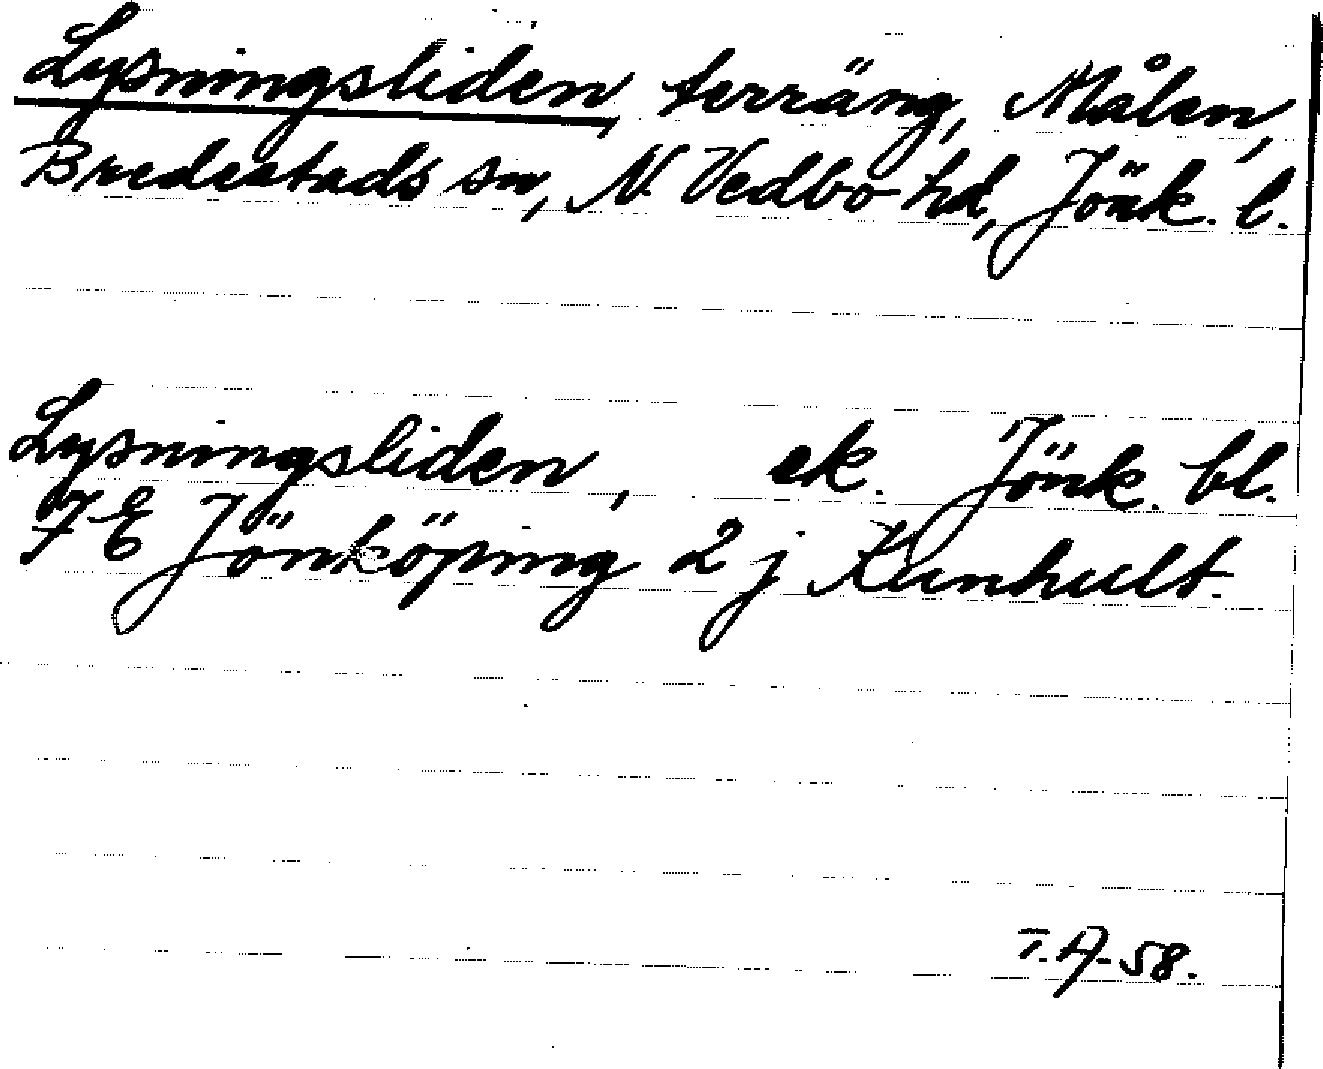 Lysningsliden, terräng, Målen,
Bredestads sn, N. Vedbo hd, Jönk. l.
Lysningsliden, ek. Jönk. bl.
7 E Jönköping 2 j Kanhult.
T. A- 58.